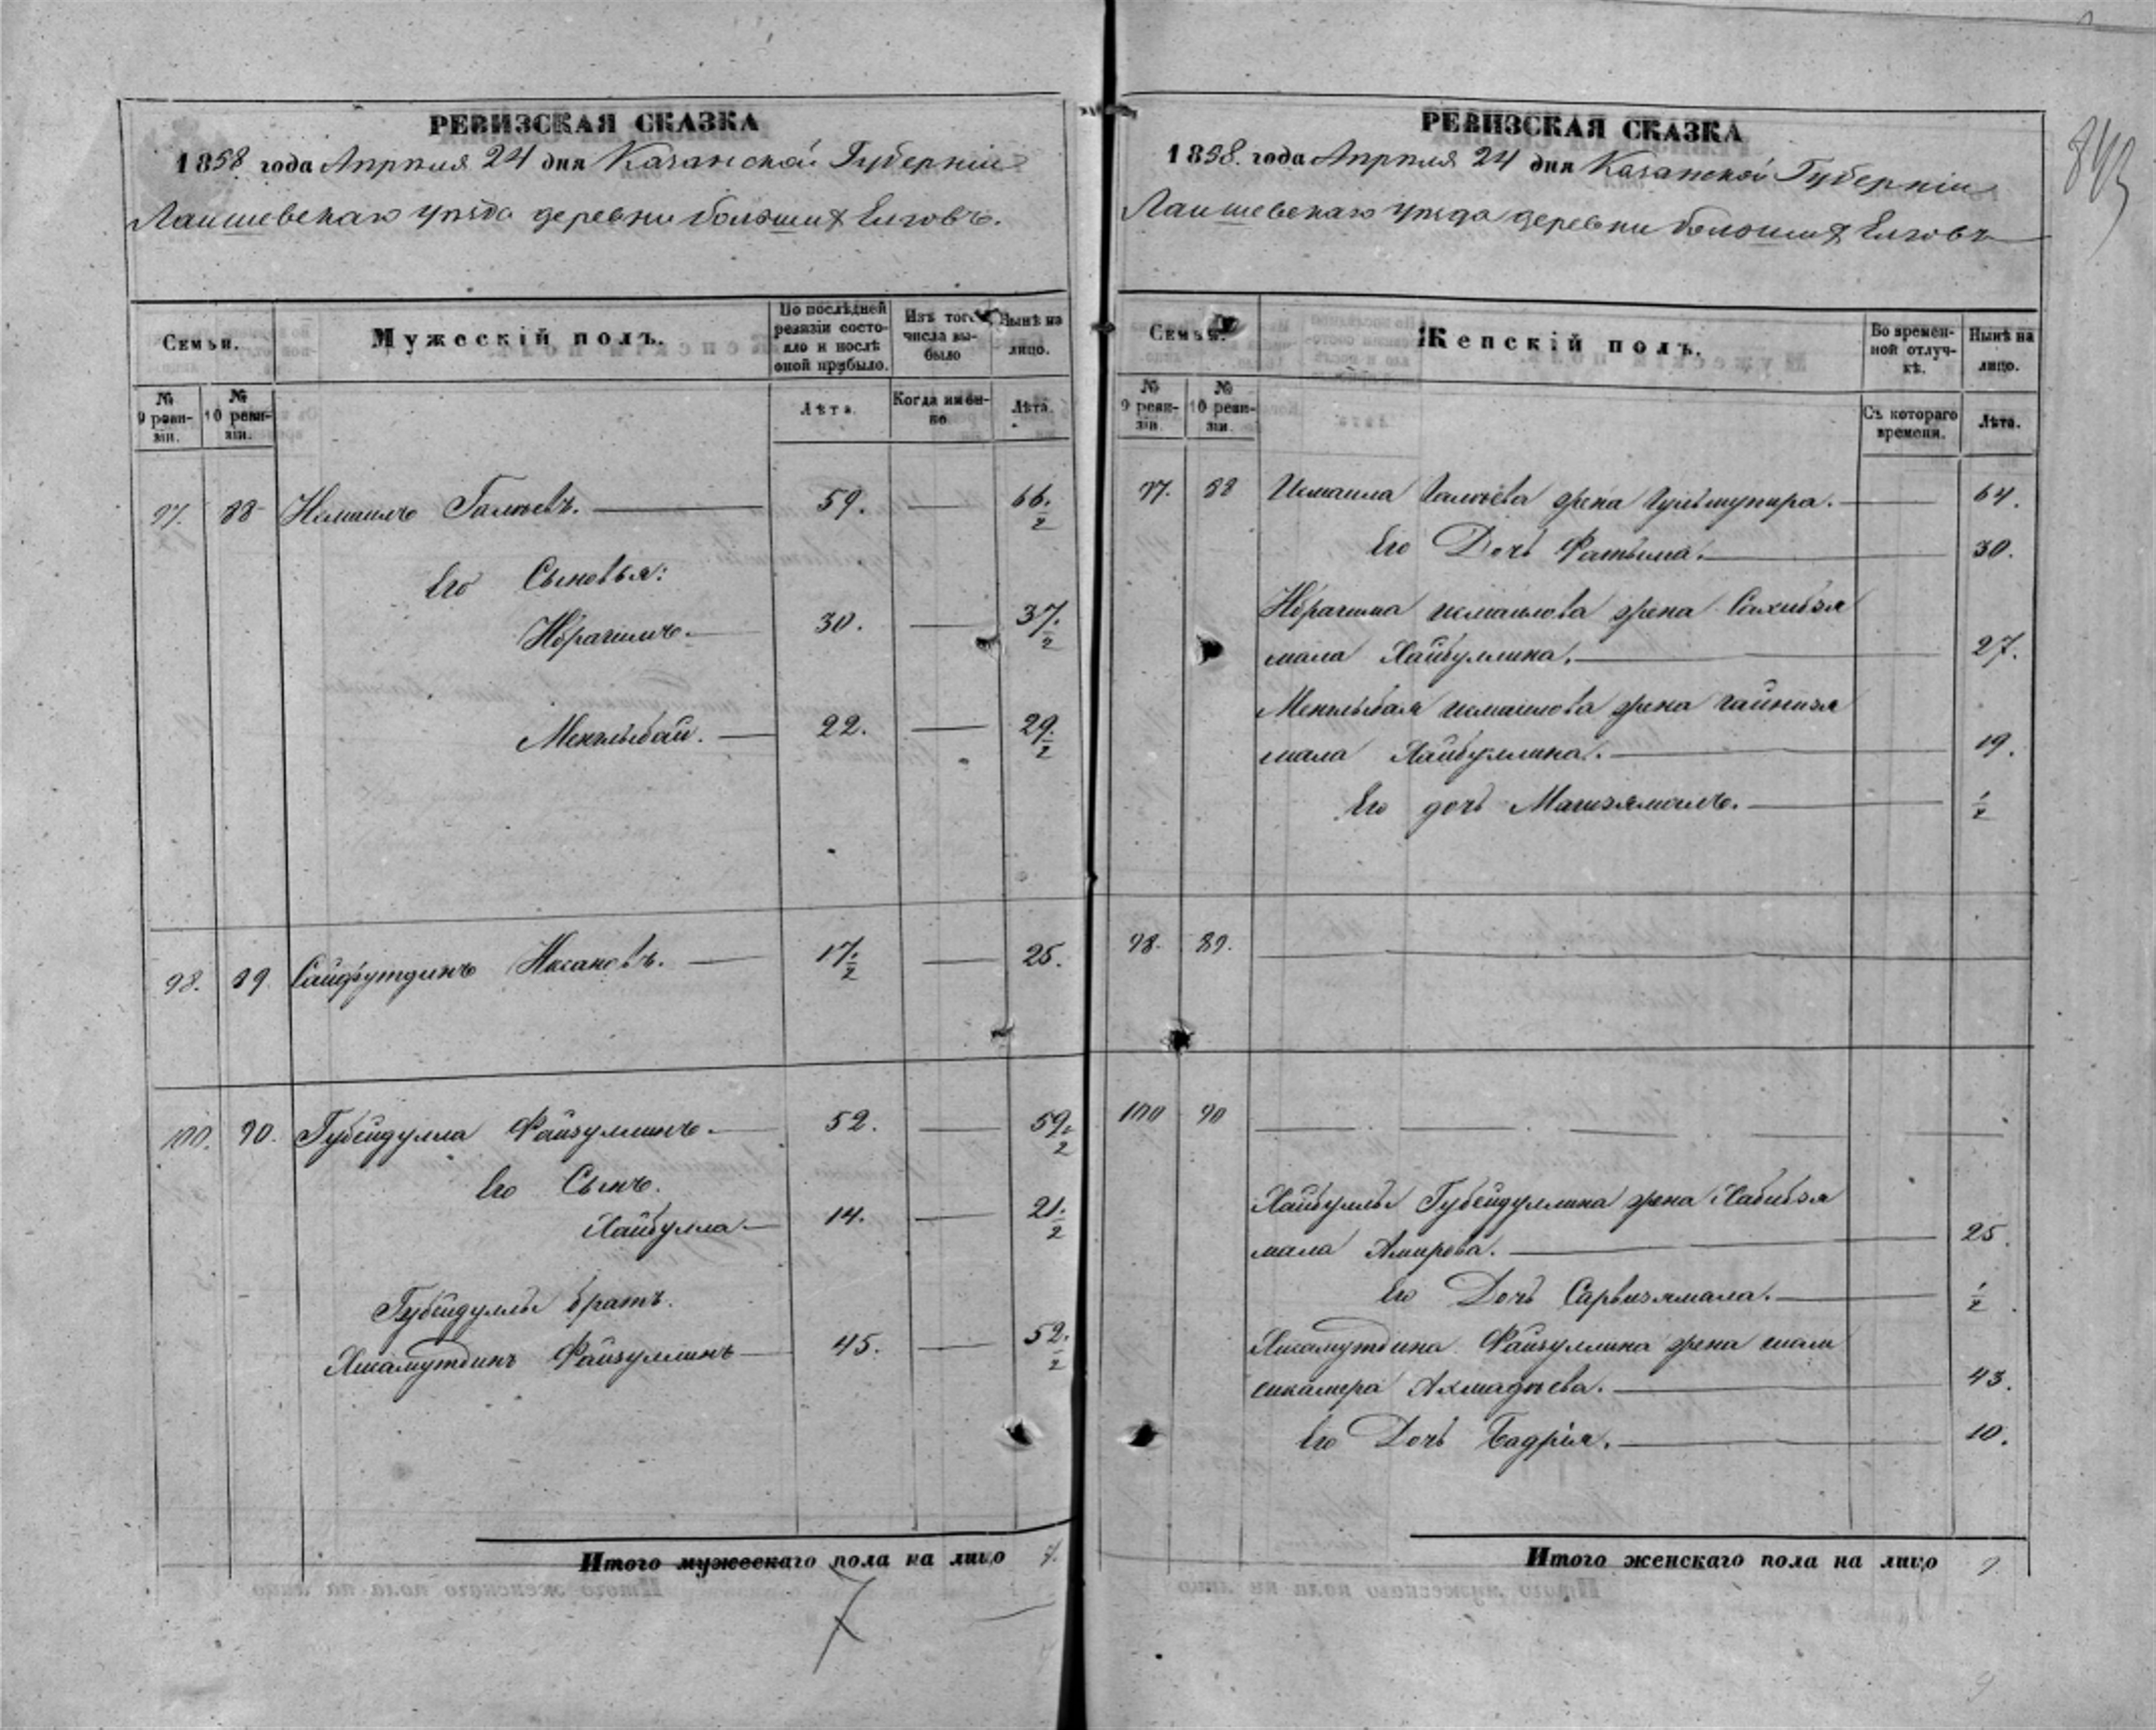 РЕВИЗСКАЯ СКАЗКА
1858 года Апрѣля 24 дня Казанской Губерніи
Лаишевскаго уѣзда деревни большихъ Елговъ.
Семьи.
Мужескій полъ.
По послѣдней ревизіи состояло и послѣ оной прибыло.
Изъ того числа выбыло
Нынѣ на лицо.
№ 9 ревизіи.
№ 10 ревизіи.
Лѣта.
Когда именно
Лѣта.
97. 88 Исмаилъ Галѣевъ. — 59. — 66 1/2
Его Сыновья:
Ибрагимъ. — 30. — 37 1/2
Менглыбай. — 22. — 29 1/2
98. 89 Сайфутдинъ Хасановъ. — 17 1/2 — 25.
100. 90. Губейдулла Файзуллинъ. — 52. — 59 1/2
Его Сынъ.
Хайбулла — 14. — 21 1/2
Губейдуллы братъ.
Хисамутдинъ Файзуллинъ — 45. — 52 1/2
Итого мужескаго пола на лицо 7.
7
843
РЕВИЗСКАЯ СКАЗКА
1858. года Апрѣля 24 дня Казанской Губерніи
Лаишевскаго уѣзда деревни большихъ Елговъ
Семьи.
Женскій полъ.
Во временной отлучкѣ.
Нынѣ на лицо.
№ 9 ревизіи.
№ 10 ревизіи.
Съ котораго времени.
Лѣта.
97. 88 Исмаила Галѣева жена Гульмунира. — 64.
Его Дочь Фатыма. — 30.
Ибрагима исмаилова жена Сахибзя
мала Хайбуллина. — 27.
Менглыбая исмаилова жена гайнизя
мала Хайбуллина. — 19.
Его дочь Магизямалъ. — 1/2
98. 89. —
100 90 —
Хайбуллы Губейдуллина жена Хабибзя
мала Амирова. — 25.
Его Дочь Сарвизямала. — 1/2
Хисамутдина Файзуллина жена шам
сикамера Ахмадѣева. — 43.
Его Дочь Бадрія. — 10.
Итого женскаго пола на лицо 9
9